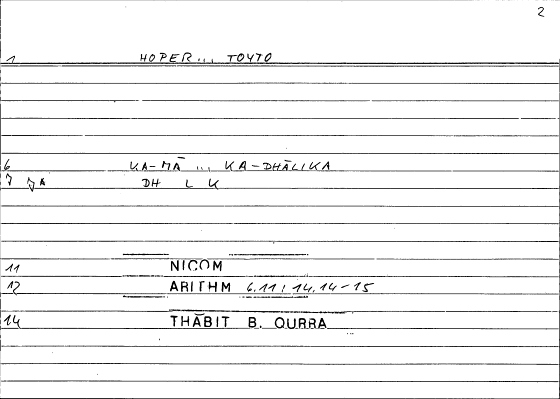 2
1 HOPER... TOYTO
6 KA-MĀ ... KA-DHĀLIKA
7 DH L K
11 NICOM
12 ARITHM 6.11; 14.14-15
14 THĀBIT B. QURRA